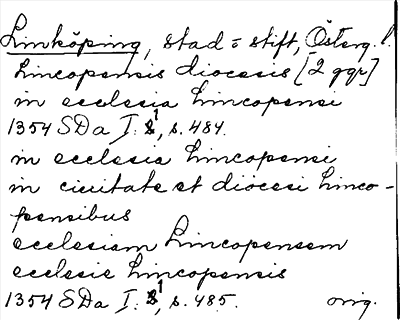 Linköping, stad = stift, Österg. l.
Lincopensis diocesis [2 ggr]
in ecclesia Lincopensi
1354 SDa I: 1, s. 484.
in ecclesia Lincopensi
in ciuitate et diocesi Linco-
pensibus
ecclesiam Lincopensem
ecclesie Lincopensis
1354 SDa I: 1, s. 485. orig.